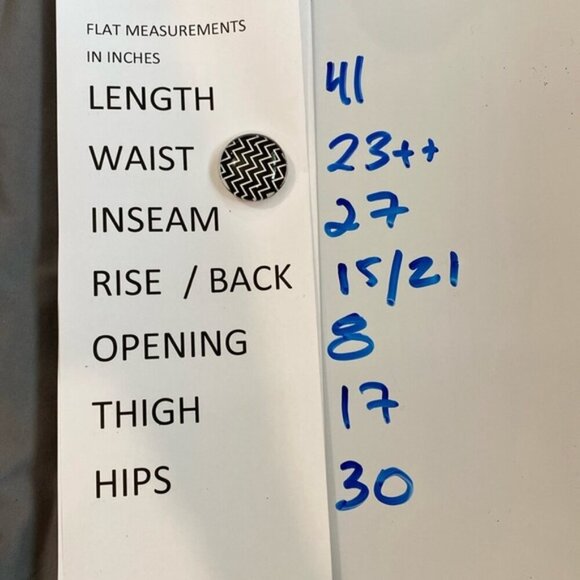 FLAT MEASUREMENTS
IN INCHES
LENGTH 41
WAIST 23++
INSEAM 27
RISE / BACK 15/21
OPENING 8
THIGH 17
HIPS 30